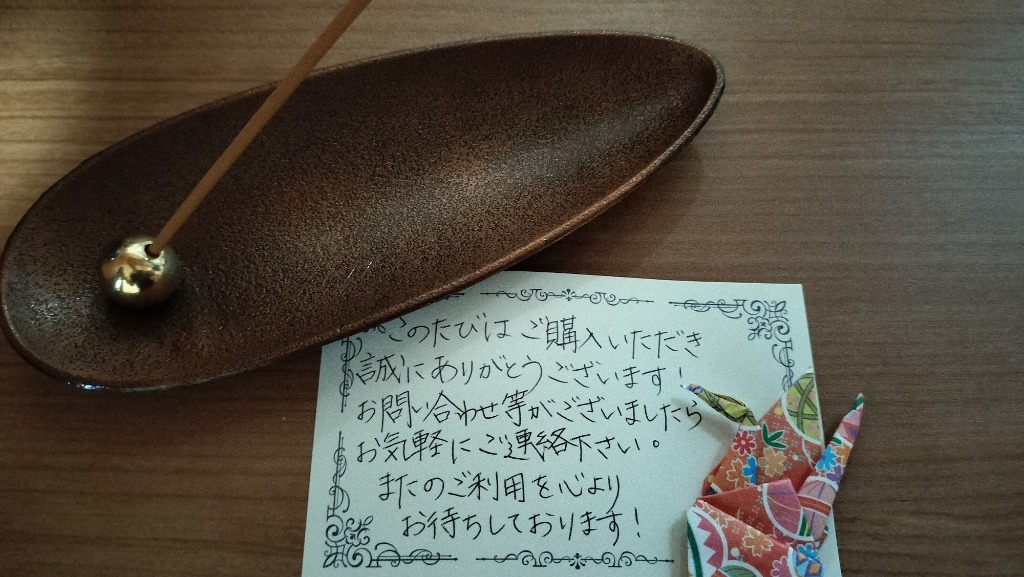 このたびはご購入いただき
誠にありがとうございます！
お問い合わせ等がございましたら
お気軽にご連絡下さい。
またのご利用を心より
お待ちしております！